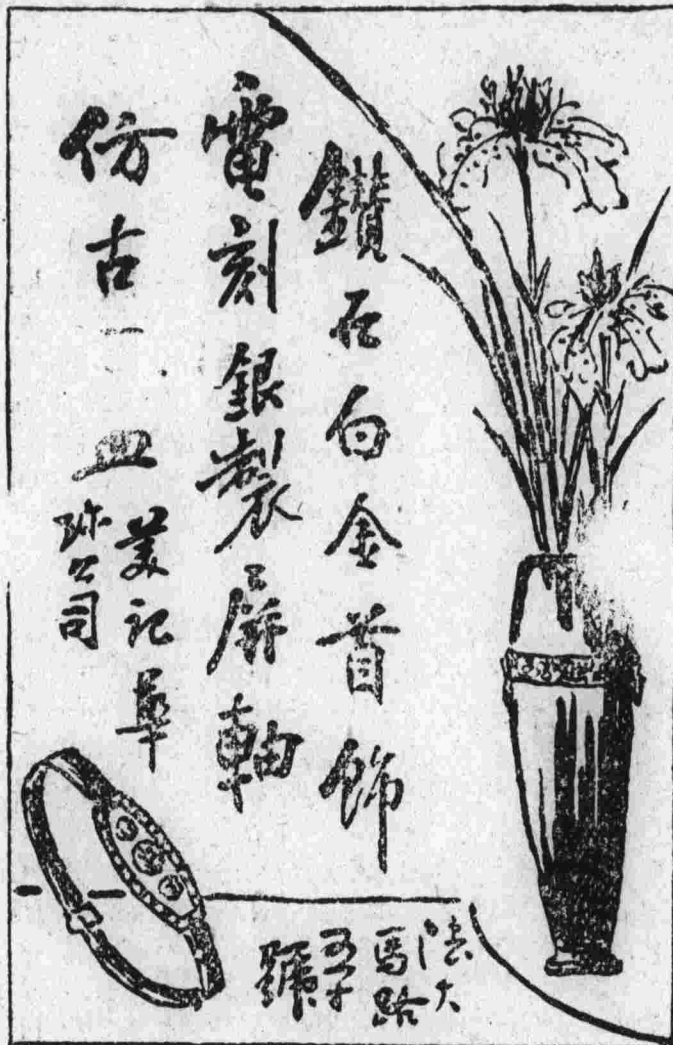 鑽石白金首飾
電刻銀製屏軸
仿古一皿
美記華
珎公司
大
馬路
號